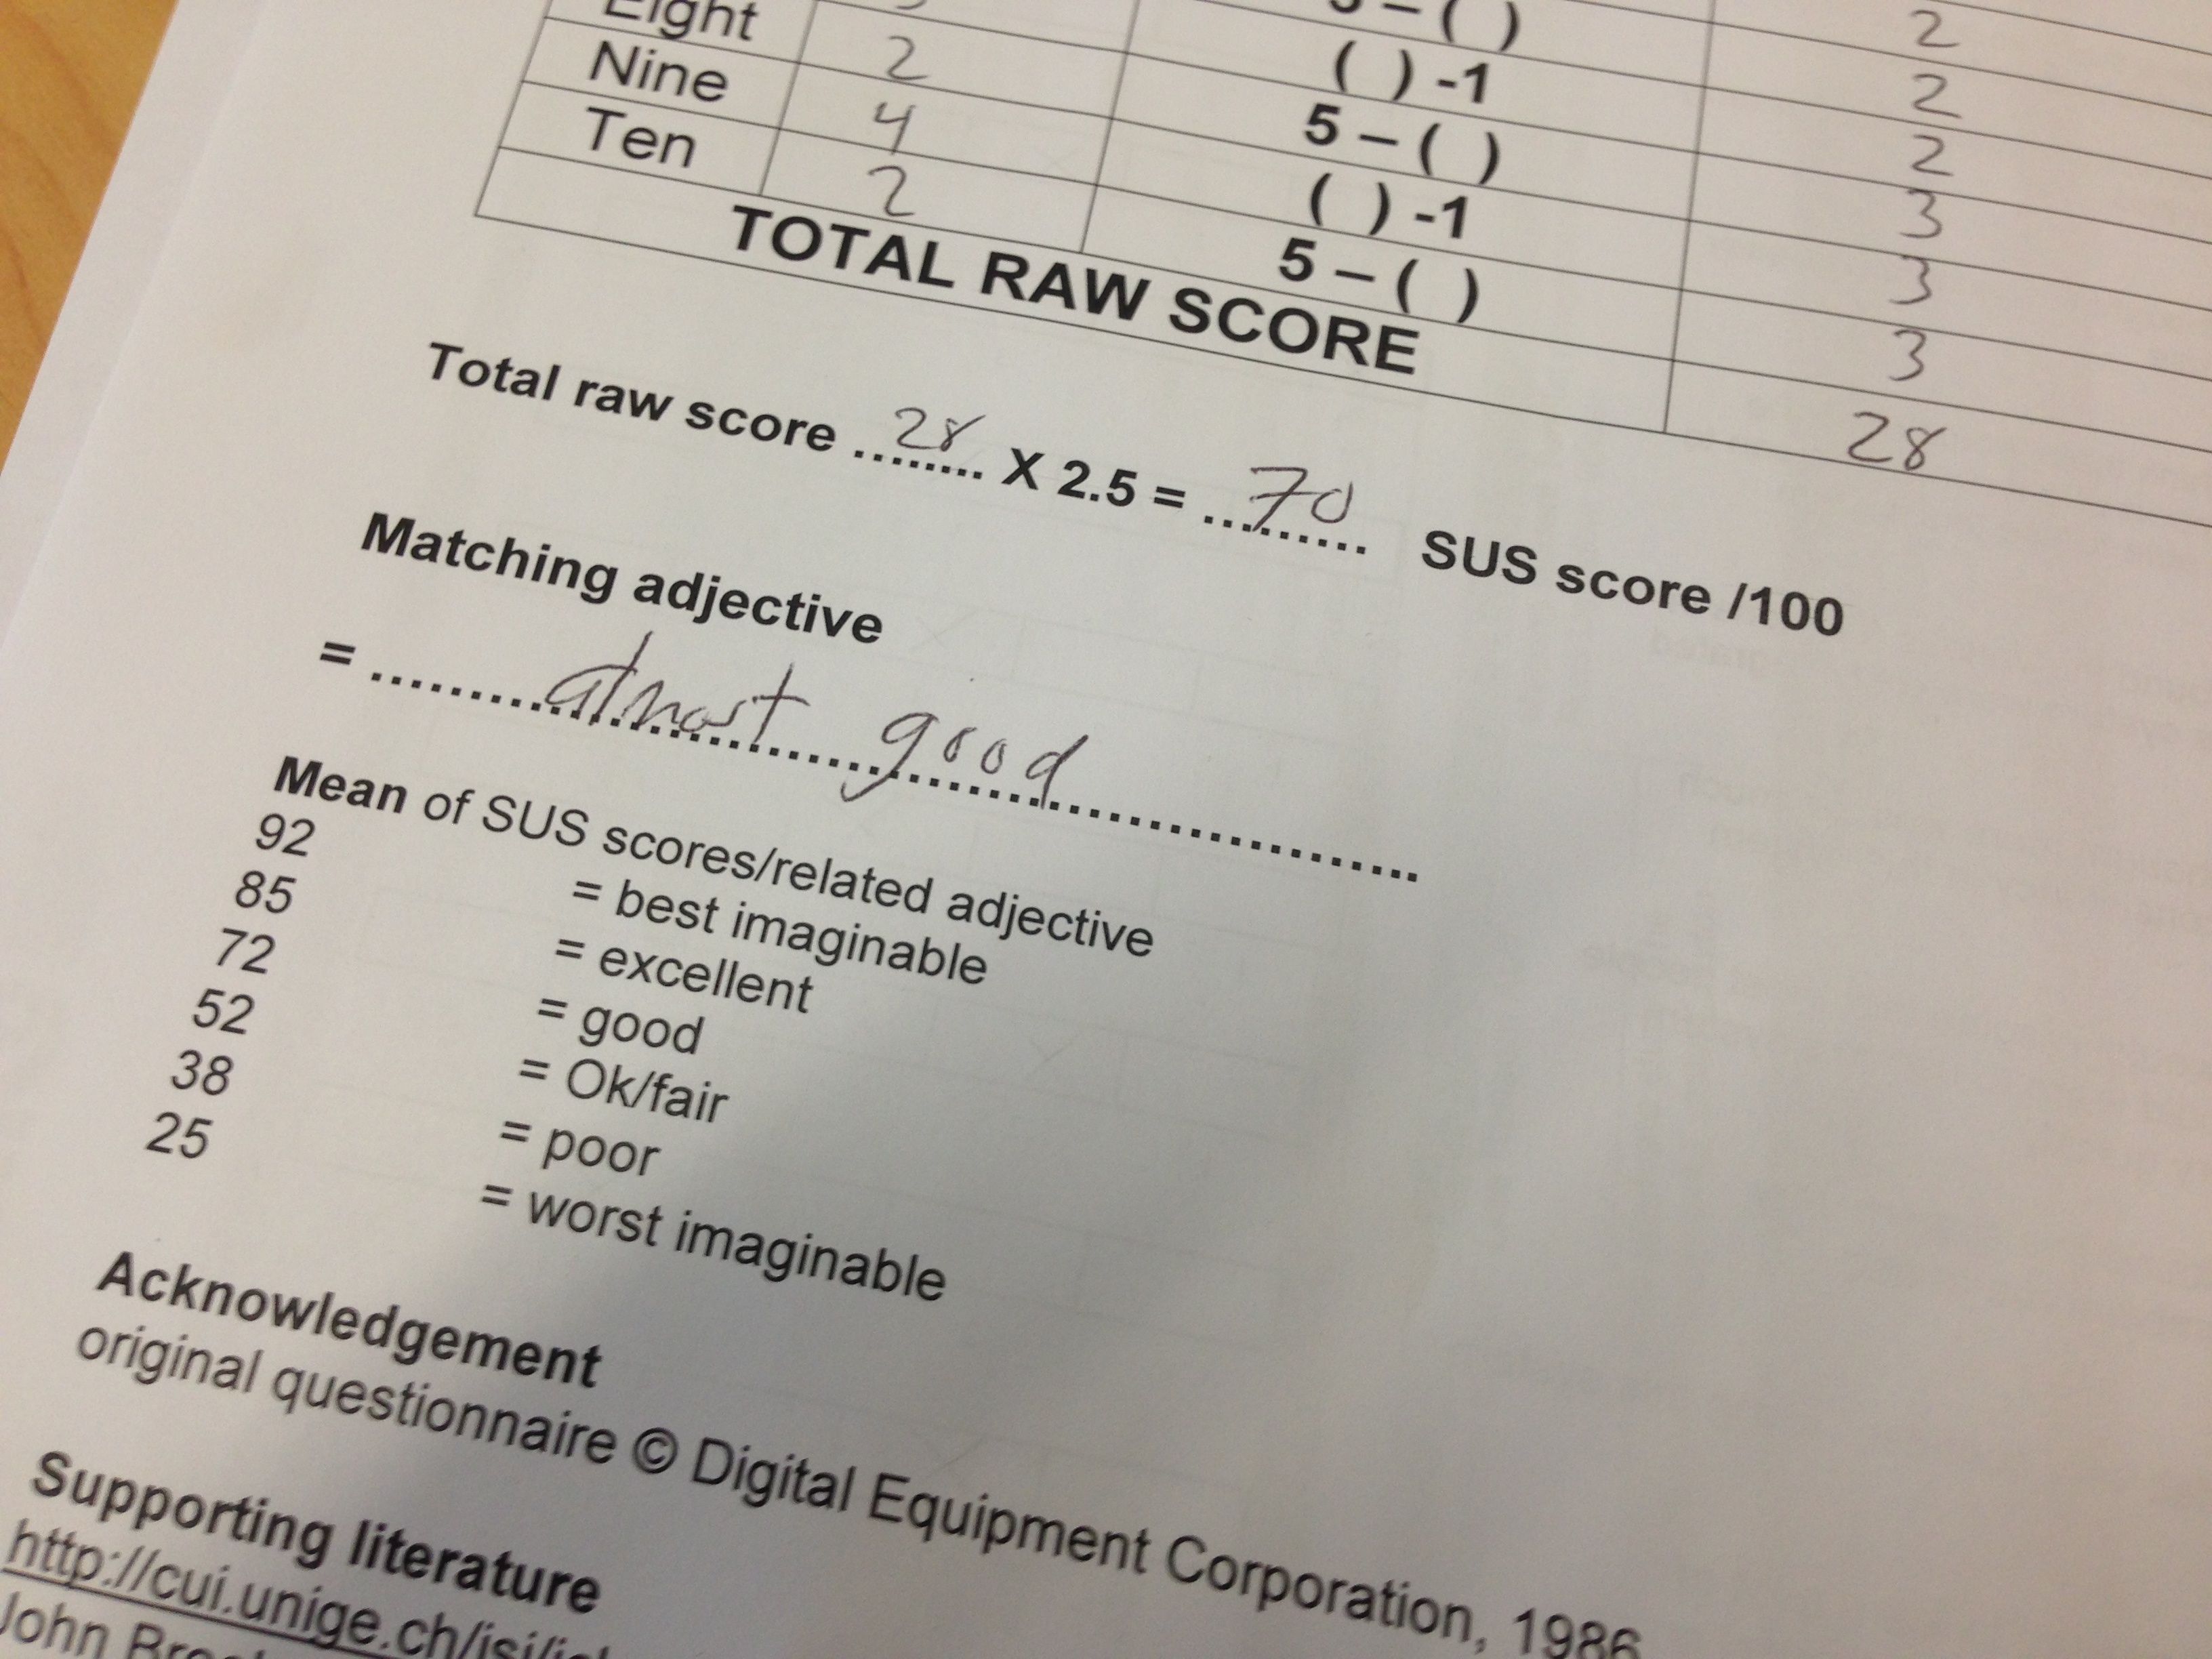 Eight 2 5 – ( ) 2
Nine 4 ( ) -1 3
Ten 2 5 – ( ) 3
TOTAL RAW SCORE 28
Total raw score ........ 28 X 2.5 = ......... 70 SUS score /100
Matching adjective
= almost good
Mean of SUS scores/related adjective
92 = best imaginable
85 = excellent
72 = good
52 = Ok/fair
38 = poor
25 = worst imaginable
Acknowledgement
original questionnaire © Digital Equipment Corporation, 1986
Supporting literature
http://cui.unige.ch/isi/
John